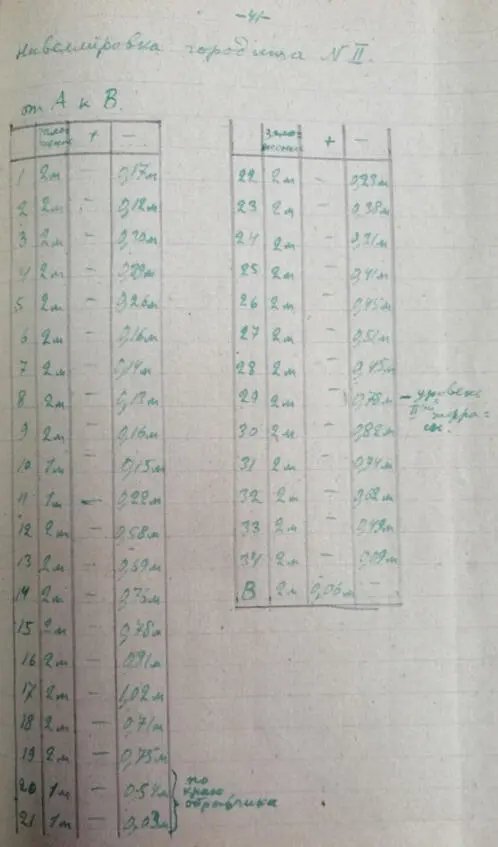 -41-
Нивеллировка городища N II.
от А к В.
зало-
жение + —
1 2м — 0,17м
2 2м — 0,12м
3 2м — 0,30м
4 2м —
5 2м — 0,26м
6 2м — 0,16м
7 2м — 0,14м
8 2м —
9 2м — 0,16м
10 1м — 0,15м
11 1м — 0,22м
12 2м — 0,58м
13 2м — 0,69м
14 2м —
15 2м — 0,78м
16 2м — 0,91м
17 2м — 1,02м
18 2м — 0,71м
19 2м — 0,75м
20 1м — 0,54м
21 1м — 0,03м
по
краю
обрывчика
зало-
жение + —
22 2м —
23 2м — 0,38м
24 2м —
25 2м — 0,41м
26 2м — 0,45м
27 2м — 0,51м
28 2м — 0,45м
29 2м — 0,78м — уровень
II терра-
сы.
30 2м — 0,82м
31 2м — 0,74м
32 2м —
33 2м — 0,49м
34 2м — 0,09м
В 2м 0,06м —